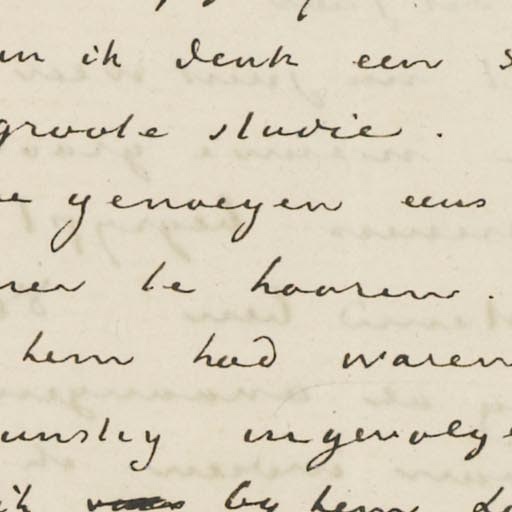 ik denk een
groote studie.
genoegen eens
te hooren.
hem had waren
ingevolge
ik by hem